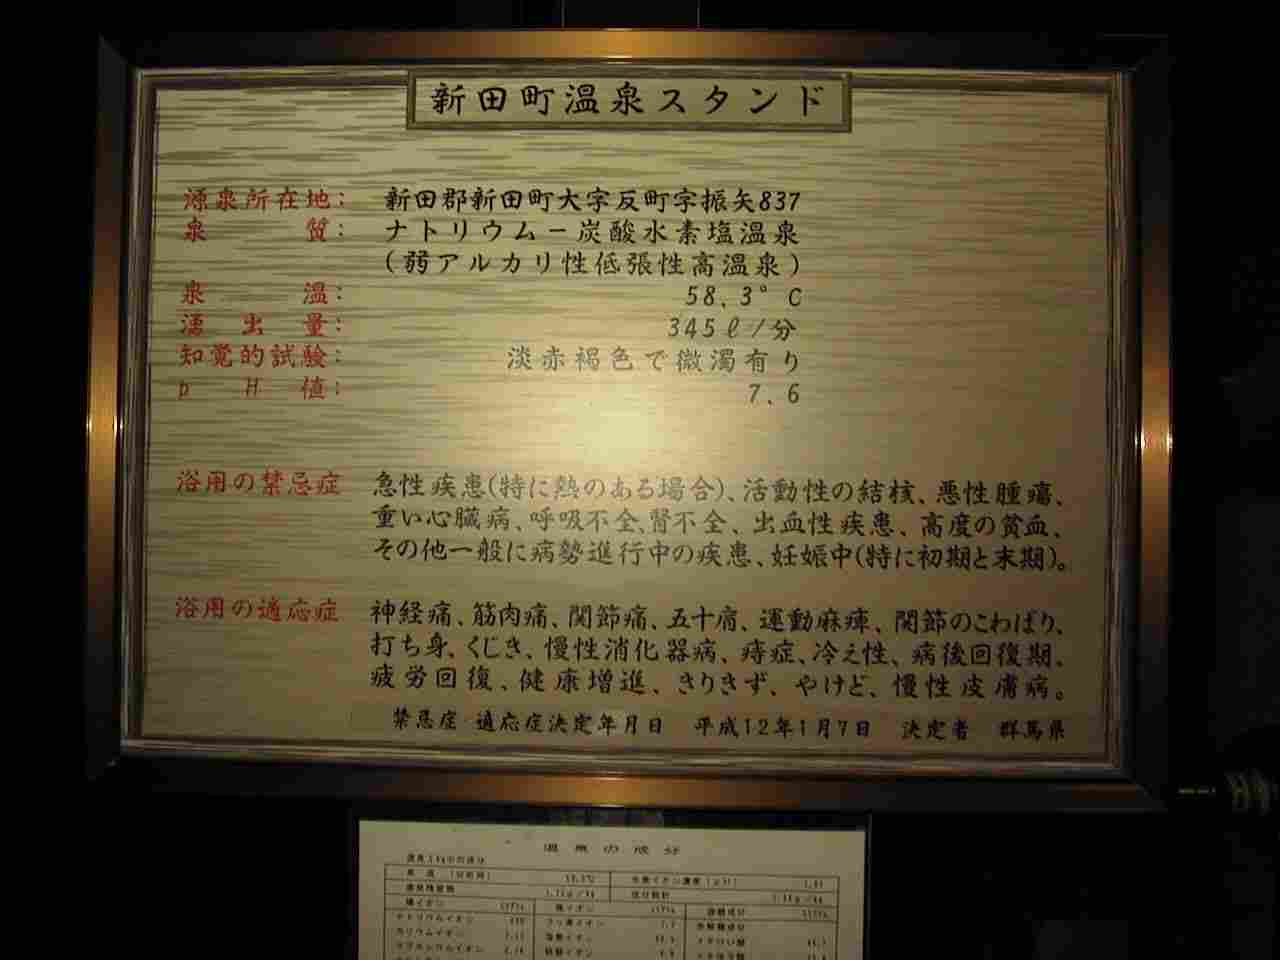 新田町温泉スタンド
源泉所在地: 新田郡新田町大字反町字振矢837
泉質: ナトリウム－炭酸水素塩温泉
(弱アルカリ性低張性高温泉)
泉温: 58.3°C
湧出量: 345ℓ/分
知覚的試験: 淡赤褐色で微濁有り
pH値: 7.6
浴用の禁忌症 急性疾患(特に熱のある場合)、活動性の結核、悪性腫瘍、
重い心臓病、呼吸不全、腎不全、出血性疾患、高度の貧血、
その他一般に病勢進行中の疾患、妊娠中(特に初期と末期)。
浴用の適応症 神経痛、筋肉痛、関節痛、五十肩、運動麻痺、関節のこわばり、
打ち身、くじき、慢性消化器病、痔症、冷え性、病後回復期、
疲労回復、健康増進、きりきず、やけど、慢性皮膚病。
禁忌症 適応症決定年月日 平成12年1月7日 決定者 群馬県
温泉の成分
陽イオン 陰イオン
ナトリウムイオン
カリウムイオン